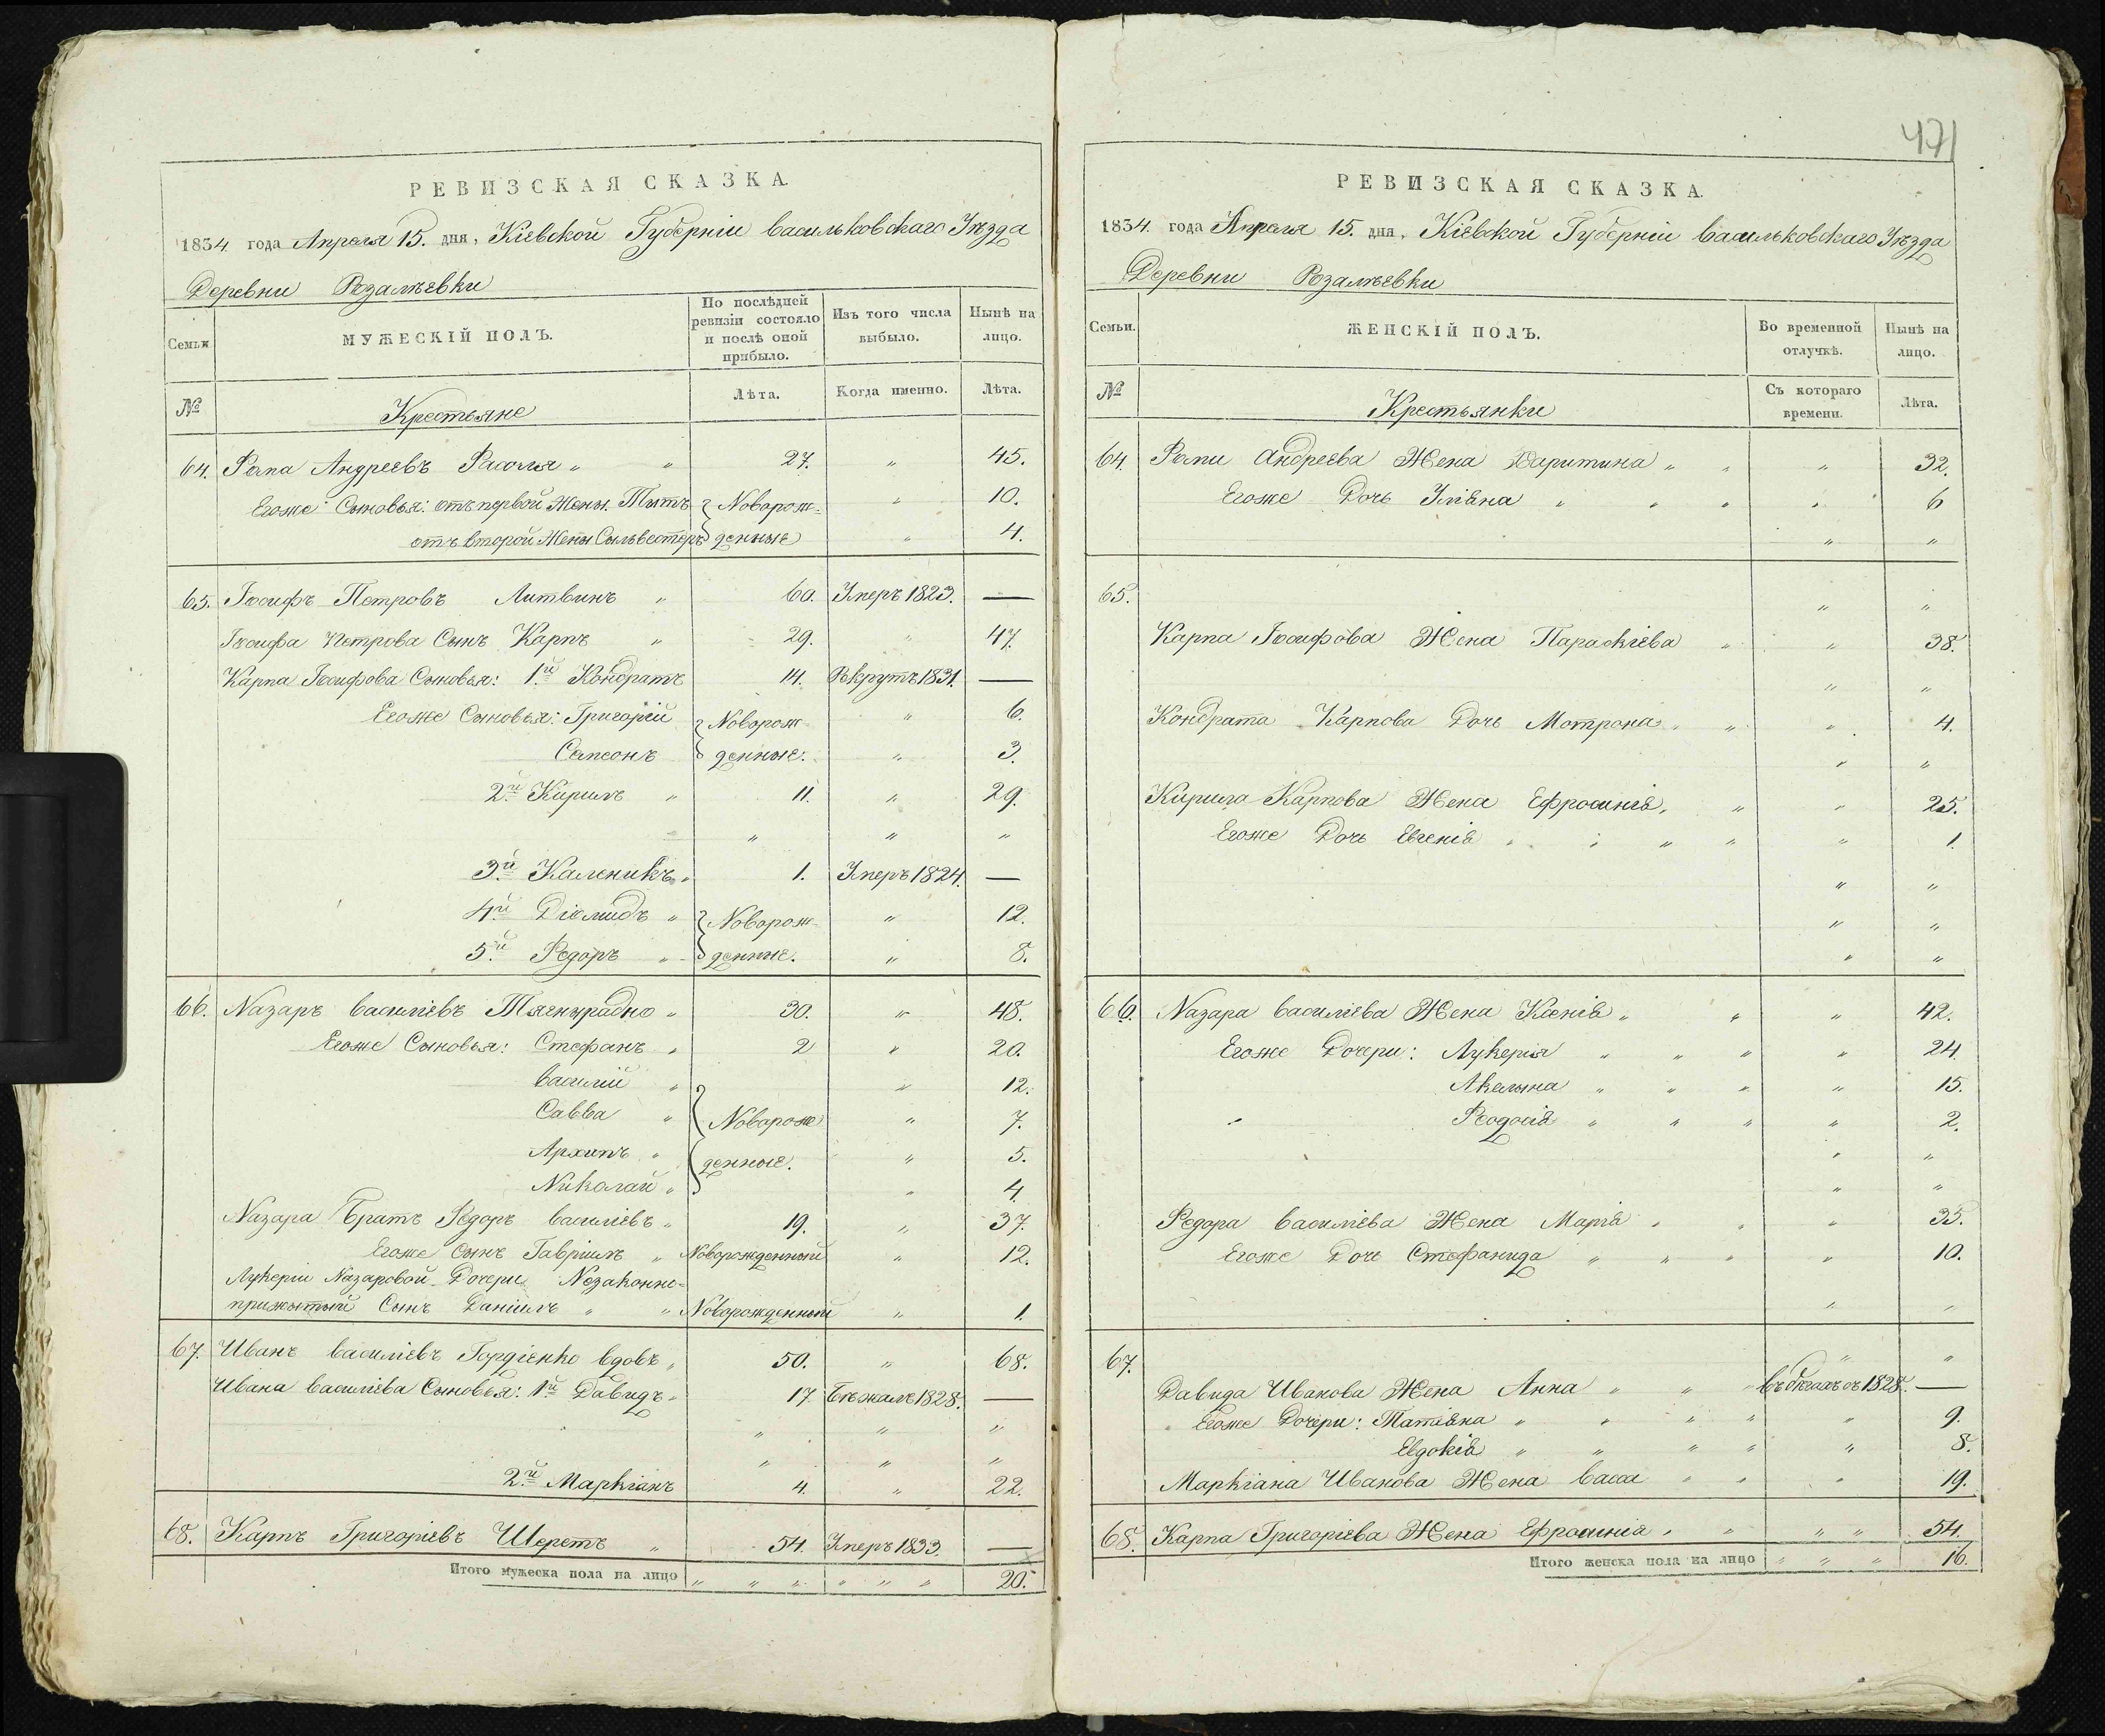 471
РЕВИЗСКАЯ СКАЗКА.
1834 года Апреля 15. дня, Кіевской Губерніи васильковскаго Уѣзда
Деревни Розалѣевки
Семьи
МУЖЕСКІЙ ПОЛЪ.
По послѣдней ревизіи состояло и послѣ оной прибыло.
Изъ того числа выбыло.
Нынѣ на лицо.
№
Крестьяне
Лѣта.
Когда именно.
Лѣта.
64. Андреевъ 27. " 45.
Егоже Сыновья: отъ первой Жены Тытъ Новорож= " 10.
отъ второй Жены Сыльвестеръ денные " 4.
65. Іосифъ Петровъ Литвинъ " 60. Умеръ 1823. —
Іосифа Петрова Сынъ Карпъ " 29. " 47.
Карпа Іосифова Сыновья: 1й Кондратъ 14. Рекрутъ 1831. —
Егоже Сыновья: Григорій Новорож " 6.
Сапсонъ денные. " 3.
2й Кирилъ " 11. " 29.
" " "
3й Каленикъ " 1. Умеръ 1824. —
4й Діомидъ " Новорож " 12.
5й Ѳедоръ " денные. " 8.
66. Назаръ василіевъ " 30. " 48.
Егоже Сыновья: Стефанъ " 2 " 20.
василій " " 12.
Савва " Новорож " 7.
Архипъ " денные. " 5.
Николай " " 4.
Назара Братъ Ѳедоръ василіевъ " 19. " 37.
Егоже сынъ Гавріилъ " Новорожденный " 12.
Лукеріи Назаровой Дочери Незаконно=
прижытый Сынъ Даніилъ " " Новорожденный " 1.
67. Иванъ василіевъ Гордіенко вдовъ " 50. " 68.
Ивана василіева Сыновья: 1й Давидъ " 17 Бѣжалъ 1828. —
" " "
" " "
2й Маркіанъ 4. " 22.
68. Карпъ Григоріевъ Шереметъ " 54. Умеръ 1833. —
Итого мужеска пола на лицо " " " " " " 20.
РЕВИЗСКАЯ СКАЗКА.
1834. года Апреля 15. дня, Кіевской Губерніи васильковскаго Уѣзда
Деревни Розалѣевки
Семьи.
ЖЕНСКІЙ ПОЛЪ.
Во временной отлучкѣ.
Нынѣ на лицо.
№
Крестьянки
Съ котораго времени.
Лѣта.
64. Андреева Жена Харитина " " " 32.
Егоже Дочь Уліяна " " " " 6
" "
65. " "
Карпа Іосифова Жена Параскіева " " 38.
" "
Кондрата Карпова Дочь Мотрона " " " 4.
" "
Кирила Карпова Жена Ефросинія, " " 25.
Егоже Дочь Евгенія " " " " " 1.
" "
" "
" "
66. Назара василіева Жена Ксенія " " " 42.
Егоже Дочери: Лукерія " " " " 24.
Акелына " " " " 15.
Ѳеодосія " " " " 2.
" "
" "
Ѳедора василіева Жена Марія " " " 35.
Егоже Дочь Стефанида " " " " 10.
" "
67. " "
Давида Иванова Жена Анна " " въ бѣгахъ съ 1828. —
Егоже Дочери: Татіяна " " " " " 9.
Евдокія " " " " " 8.
Маркіана Иванова Жена васса " " " 19.
68. Карпа Григоріева Жена Ефросинія " " " " 54.
Итого женска пола на лицо " " " 16.